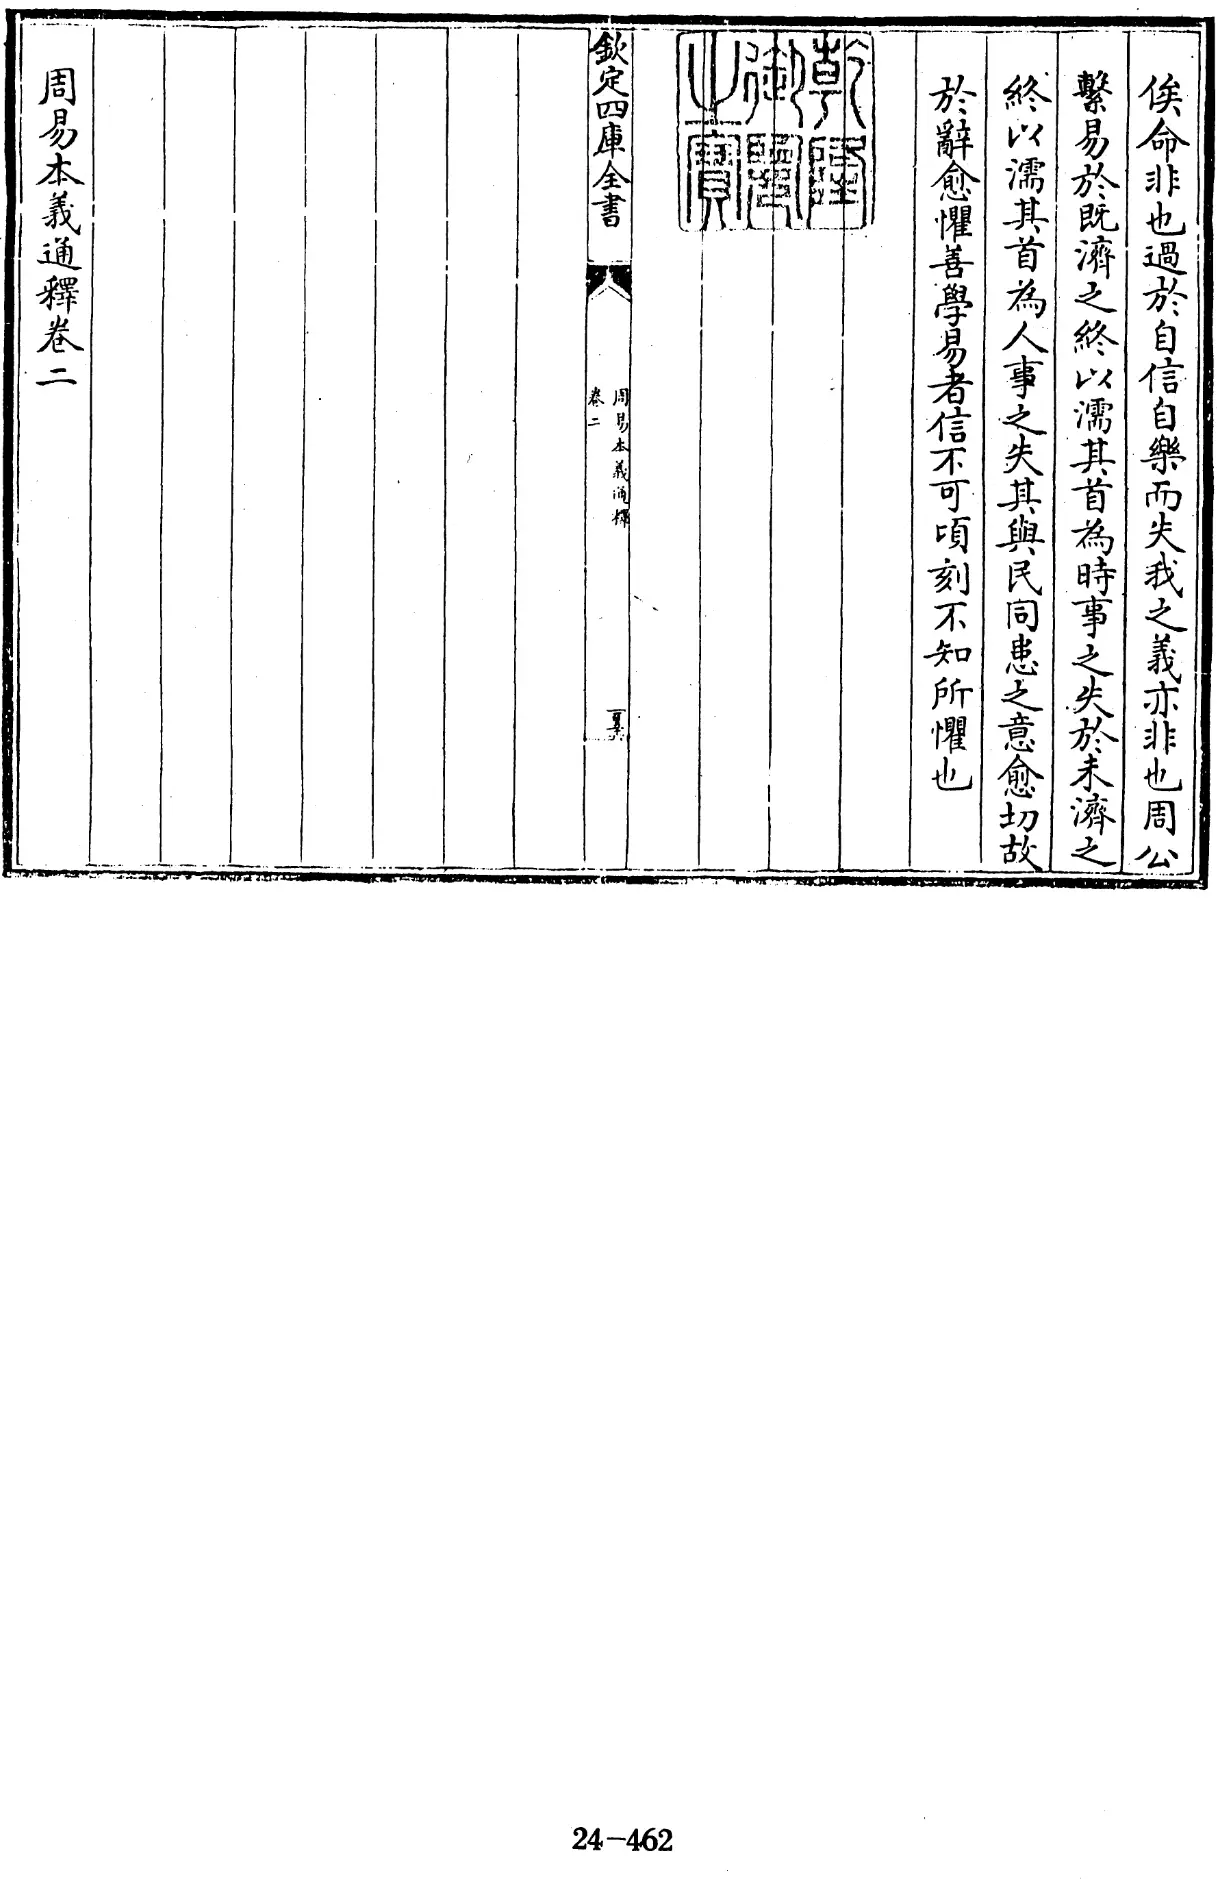 俟命非也過於自信自樂而失我之義亦非也周公
繫易於既濟之終以濡其首為時事之失於未濟之
終以濡其首為人事之失其與民同患之意愈切故
於辭愈懼善學易者信不可頃刻不知所懼也
乾隆御覽之寶
欽定四庫全書
周易本義通釋
卷二
周易本義通釋卷二
24-462